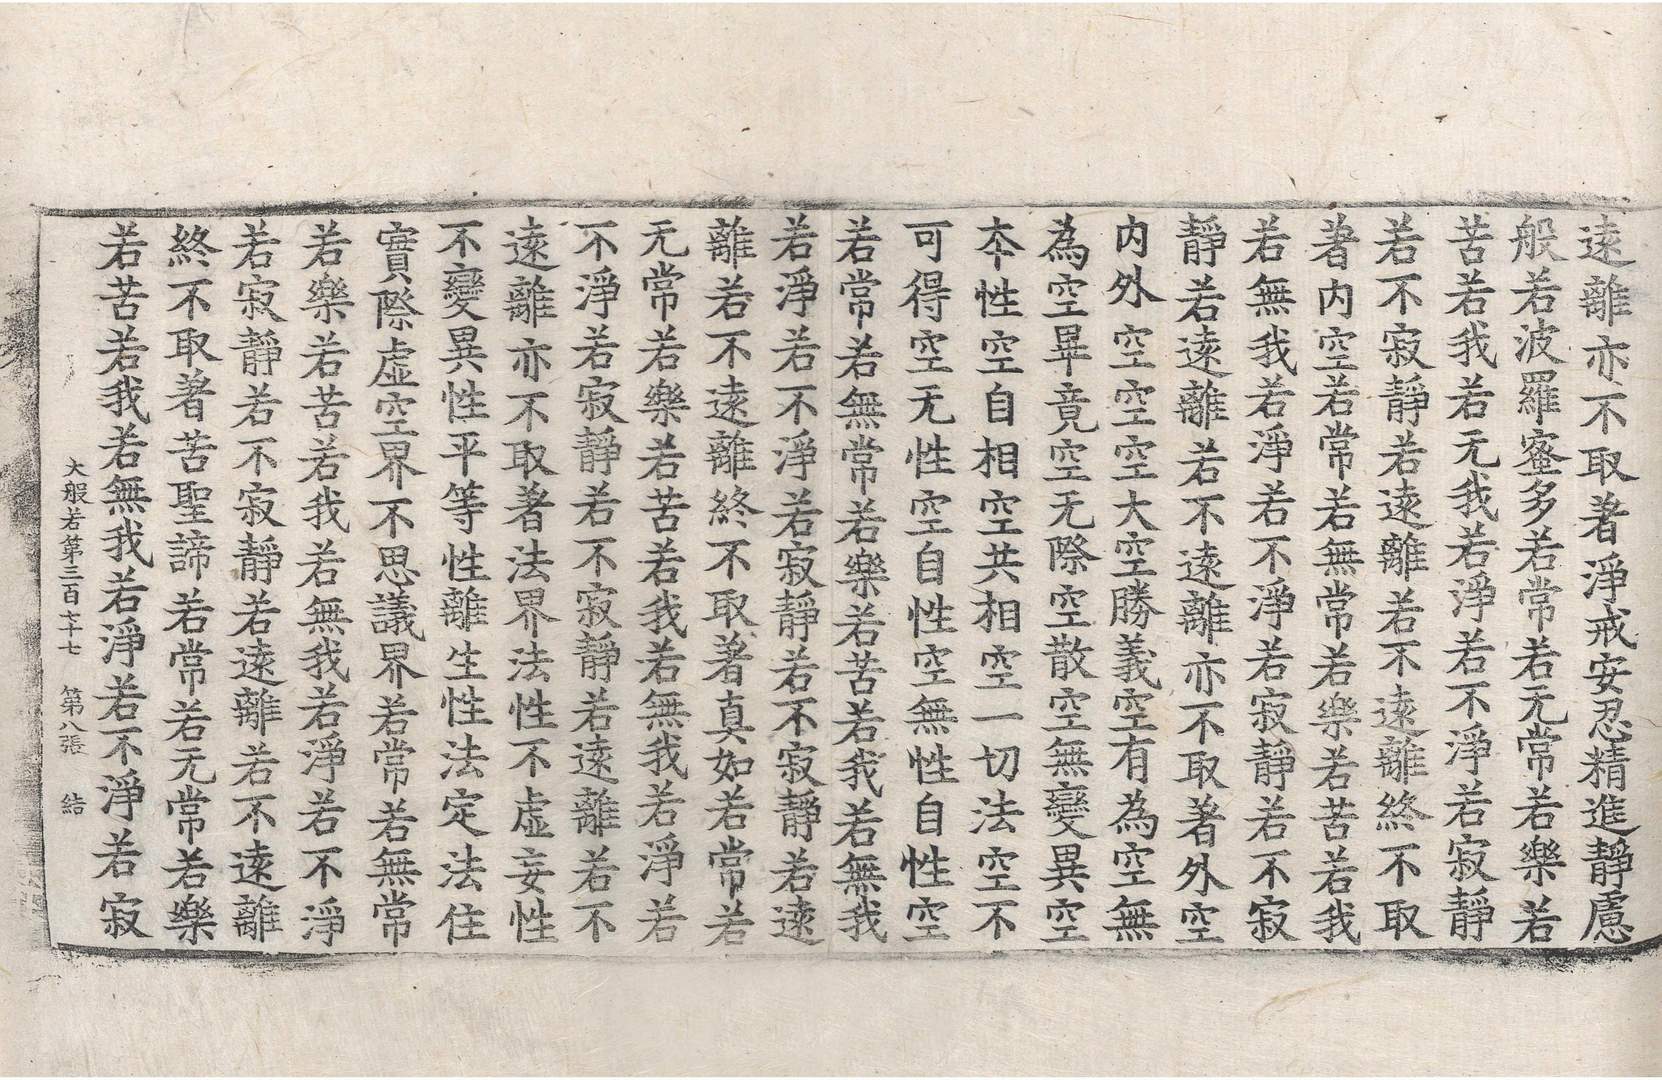 遠離亦不取著淨戒安忍精進靜慮
般若波羅蜜多若常若无常若樂若
苦若我若无我若淨若不淨若寂靜
若不寂靜若遠離若不遠離終不取
著内空若常若無常若樂若苦若我
若無我若淨若不淨若寂靜若不寂
靜若遠離若不遠離亦不取著外空
内外空空空大空勝義空有為空無
為空畢竟空无際空散空無變異空
夲性空自相空共相空一切法空不
可得空无性空自性空無性自性空
若常若無常若樂若苦若我若無我
若淨若不淨若寂靜若不寂靜若遠
離若不遠離終不取著真如若常若
无常若樂若苦若我若無我若淨若
不淨若寂靜若不寂靜若遠離若不
遠離亦不取著法界法性不虛妄性
不變異性平等性離生性法定法住
實際虛空界不思議界若常若無常
若樂若苦若我若無我若淨若不淨
若寂靜若不寂靜若遠離若不遠離
終不取著苦聖諦若常若无常若樂
若苦若我若無我若淨若不淨若寂
大般若第三百七十七 第八張 結